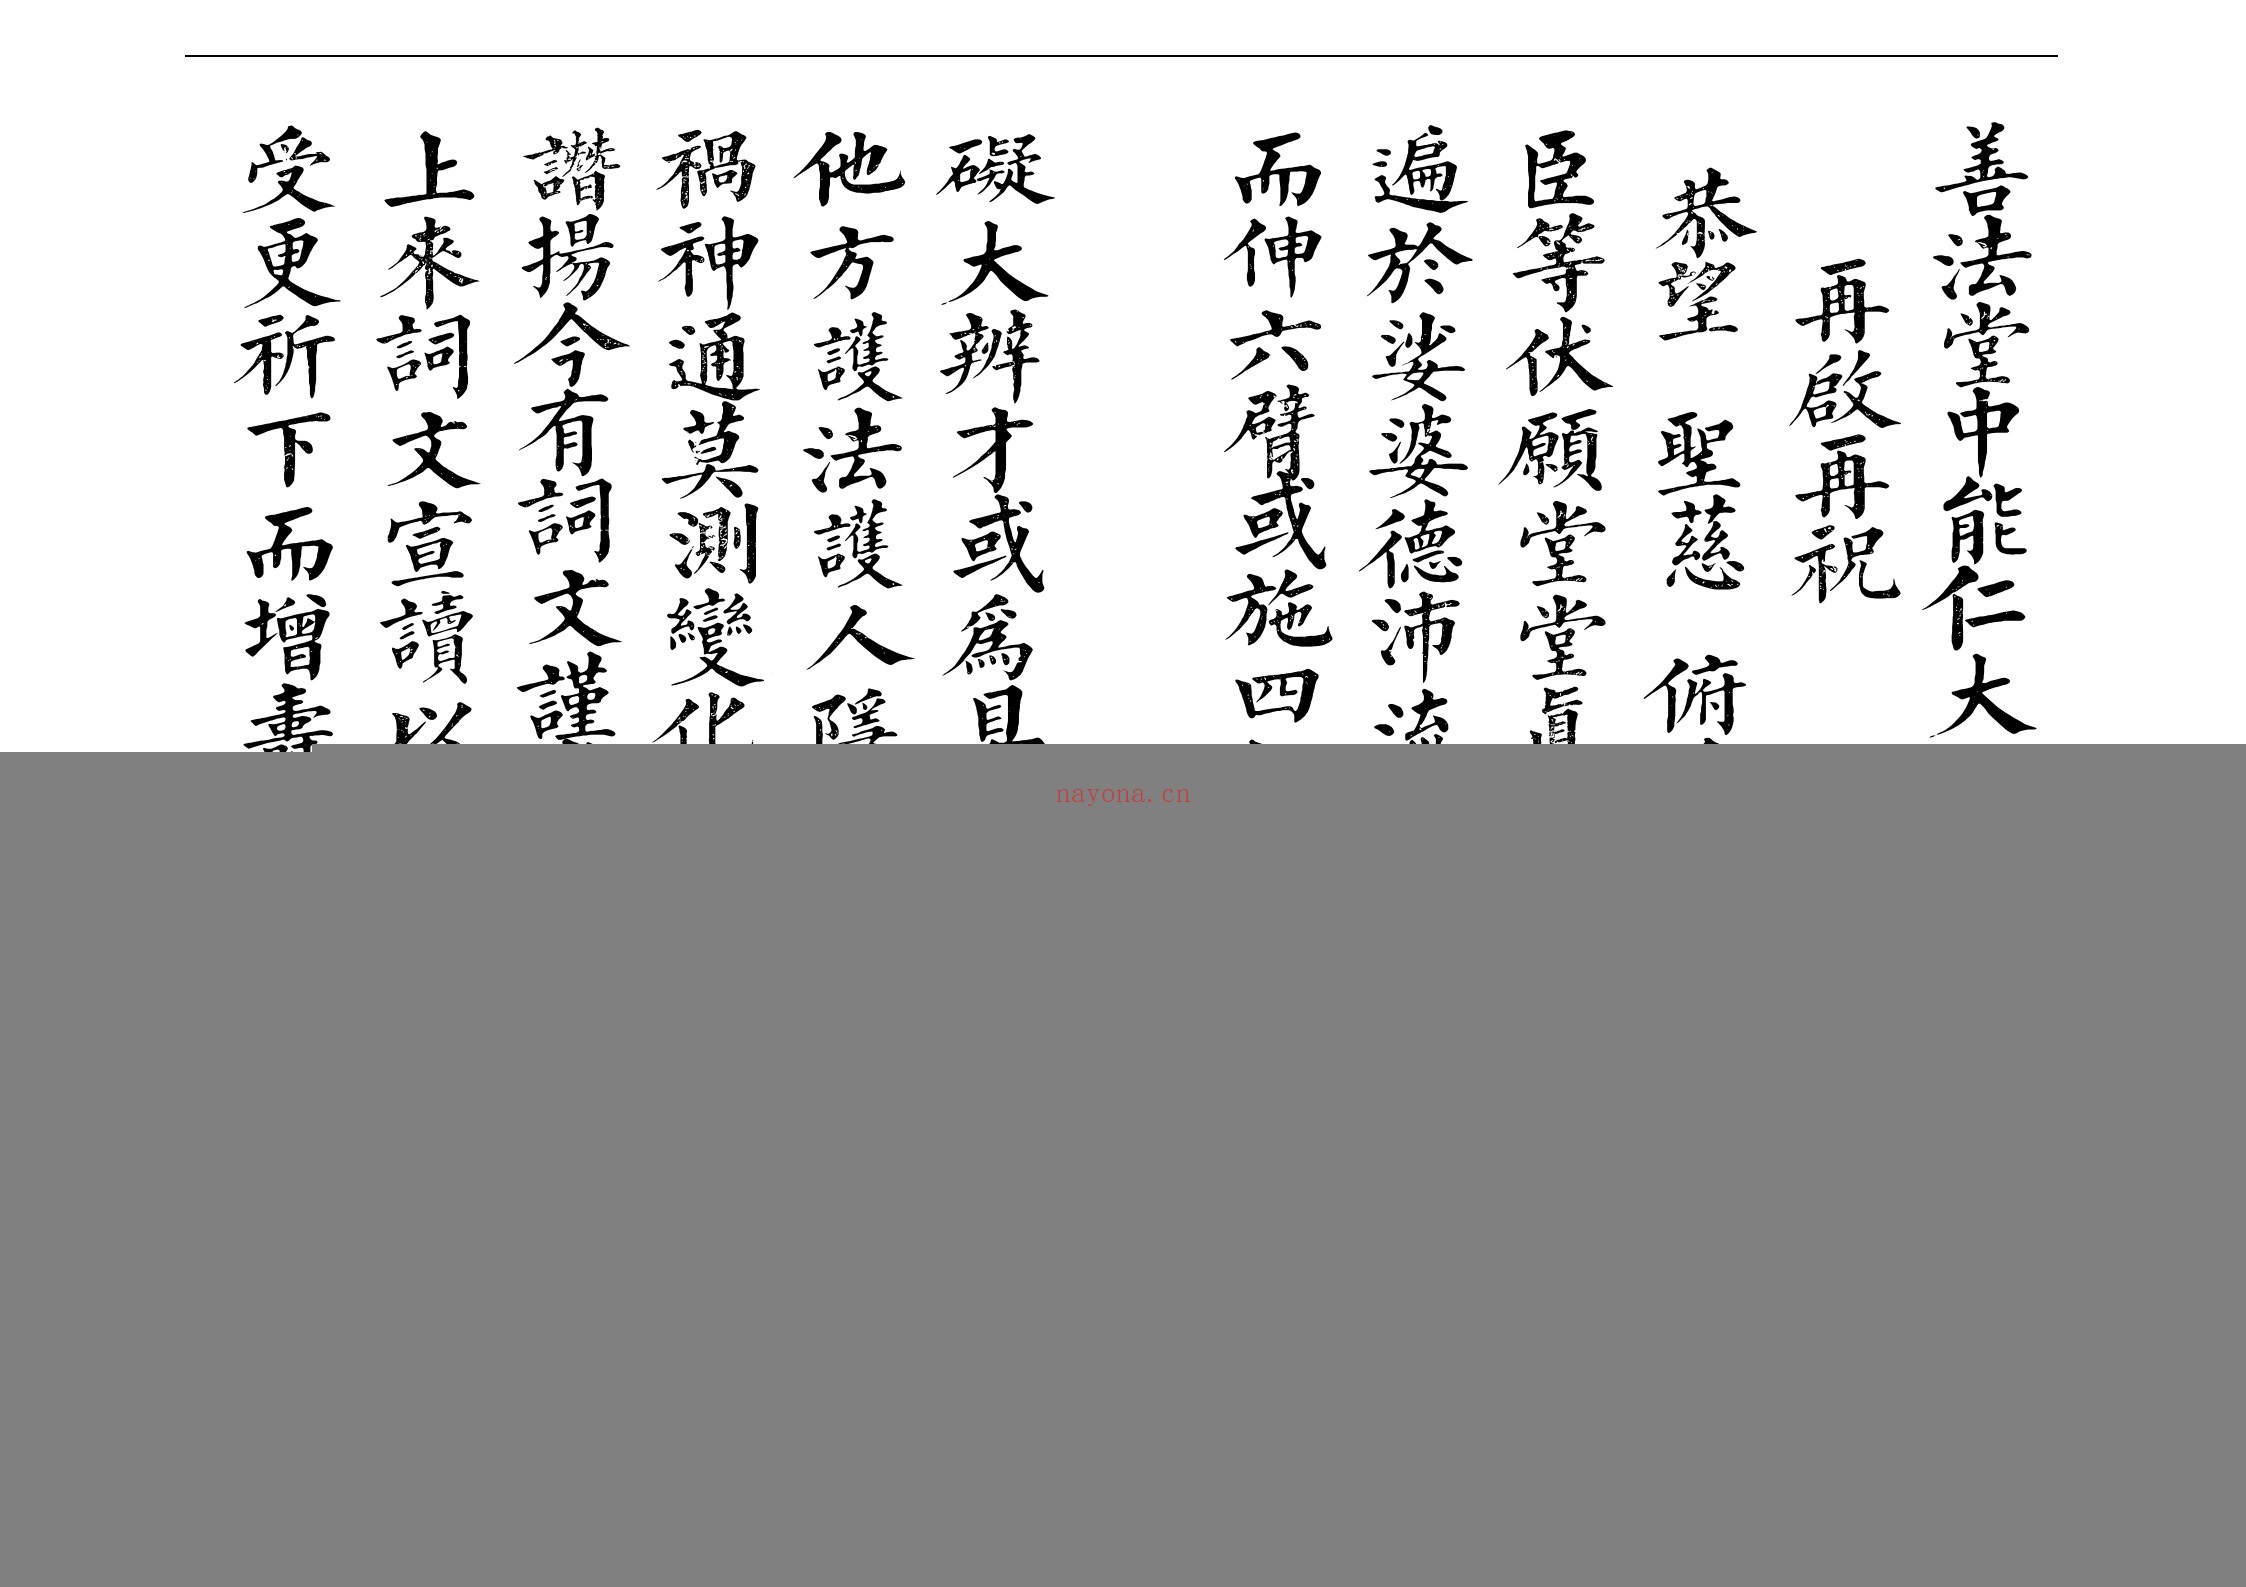 善法堂中能仁大
再啟再祝
恭望 聖慈 俯
臣等伏願堂堂眞
遍於娑婆德沛流
而伸六臂或施四
礙大辨才或爲具
他方護法護人隱
禍神通莫測變化
讚揚今有詞文謹
上來詞文宣讀以
受更祈下而增壽
nayona.cn